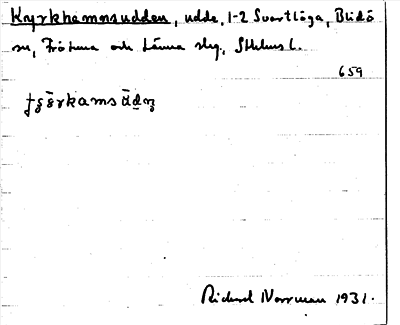 Kyrkhamnsudden, udde, 1-2 Svartlöga, Blidö
sn, Frötuna och Länna skg, Sthlms l.
659
Richard Norrman 1931.